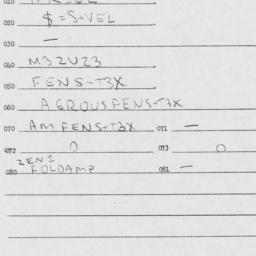 010
020 $=S+VEL
030 —
040 M32U23
050 FENS-T3X
060 AGROUSFENS-T3X
070 AM FENS-T3X 071 —
072 0 073 0
2EN1
080 FOLDAMP 081 —